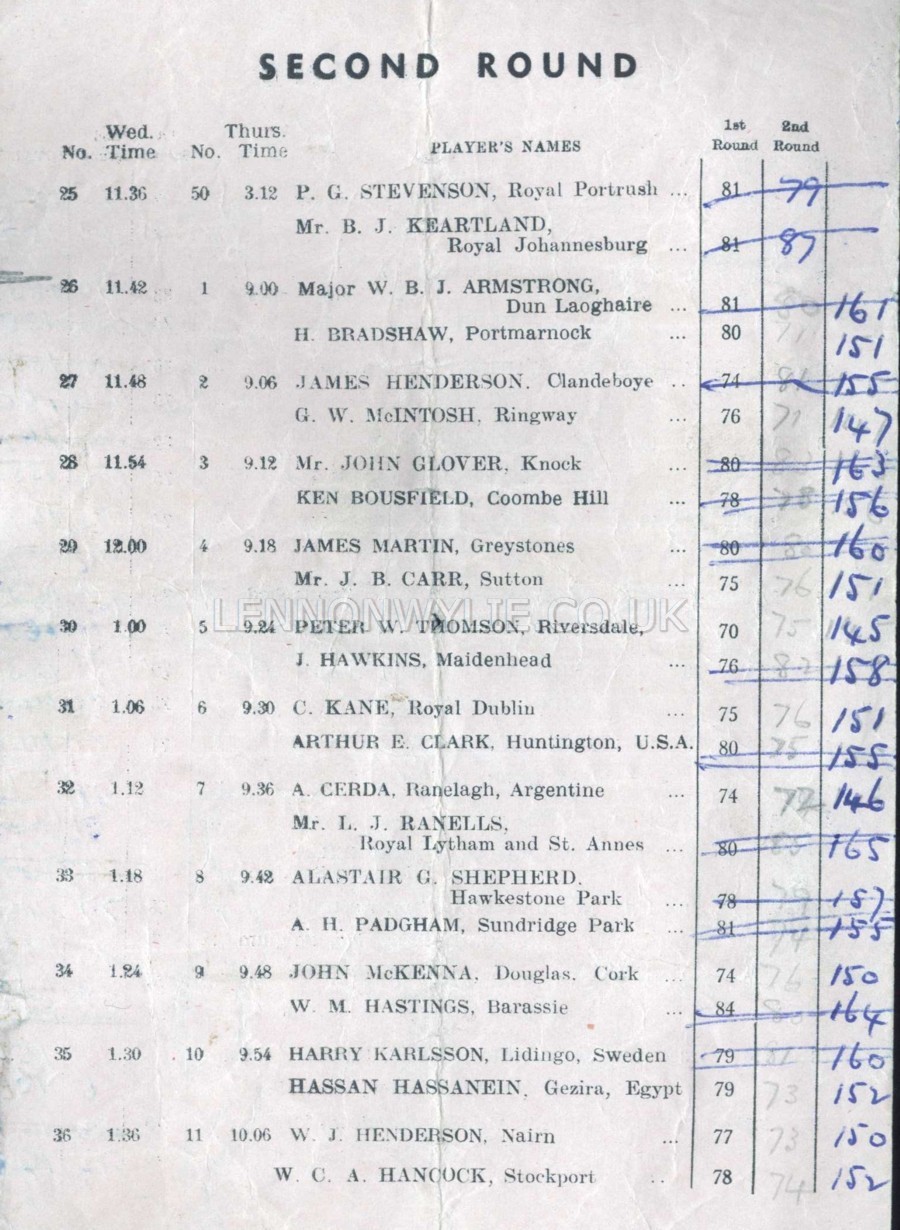 SECOND ROUND
Wed. Thurs. 1st 2nd
No. Time No. Time PLAYER'S NAMES Round Round
25 11.36 50 3.12 P. G. STEVENSON, Royal Portrush ... 81 79
Mr. B. J. KEARTLAND,
Royal Johannesburg ... 81 87
26 11.42 1 9.00 Major W. B. J. ARMSTRONG,
Dun Laoghaire ... 81 80 161
H. BRADSHAW, Portmarnock ... 80 71 151
27 11.48 2 9.06 JAMES HENDERSON, Clandeboye .. 74 81 155
G. W. McINTOSH, Ringway ... 76 71 147
28 11.54 3 9.12 Mr. JOHN GLOVER, Knock ... 80 163
KEN BOUSFIELD, Coombe Hill ... 78 78 156
29 12.00 4 9.18 JAMES MARTIN, Greystones ... 80 80 160
Mr. J. B. CARR, Sutton ... 75 76 151
LENNONWYLIE.CO.UK
30 1.00 5 9.24 PETER W. THOMSON, Riversdale, 70 75 145
J. HAWKINS, Maidenhead ... 76 82 158
31 1.06 6 9.30 C. KANE, Royal Dublin ... 75 76 151
ARTHUR E. CLARK, Huntington, U.S.A. 80 75 155
32 1.12 7 9.36 A. CERDA, Ranelagh, Argentine ... 74 72 146
Mr. L. J. RANELLS,
Royal Lytham and St. Annes ... 80 85 165
33 1.18 8 9.42 ALASTAIR G. SHEPHERD,
Hawkestone Park .... 78 79 157
A. H. PADGHAM, Sundridge Park ... 81 74 155
34 1.24 9 9.48 JOHN McKENNA, Douglas, Cork ... 74 76 150
W. M. HASTINGS, Barassie ... 84 80 164
35 1.30 10 9.54 HARRY KARLSSON, Lidingo, Sweden 79 81 160
HASSAN HASSANEIN, Gezira, Egypt 79 73 152
36 1.36 11 10.06 W. J. HENDERSON, Nairn ... 77 73 150
W. C. A. HANCOCK, Stockport .. 78 74 152